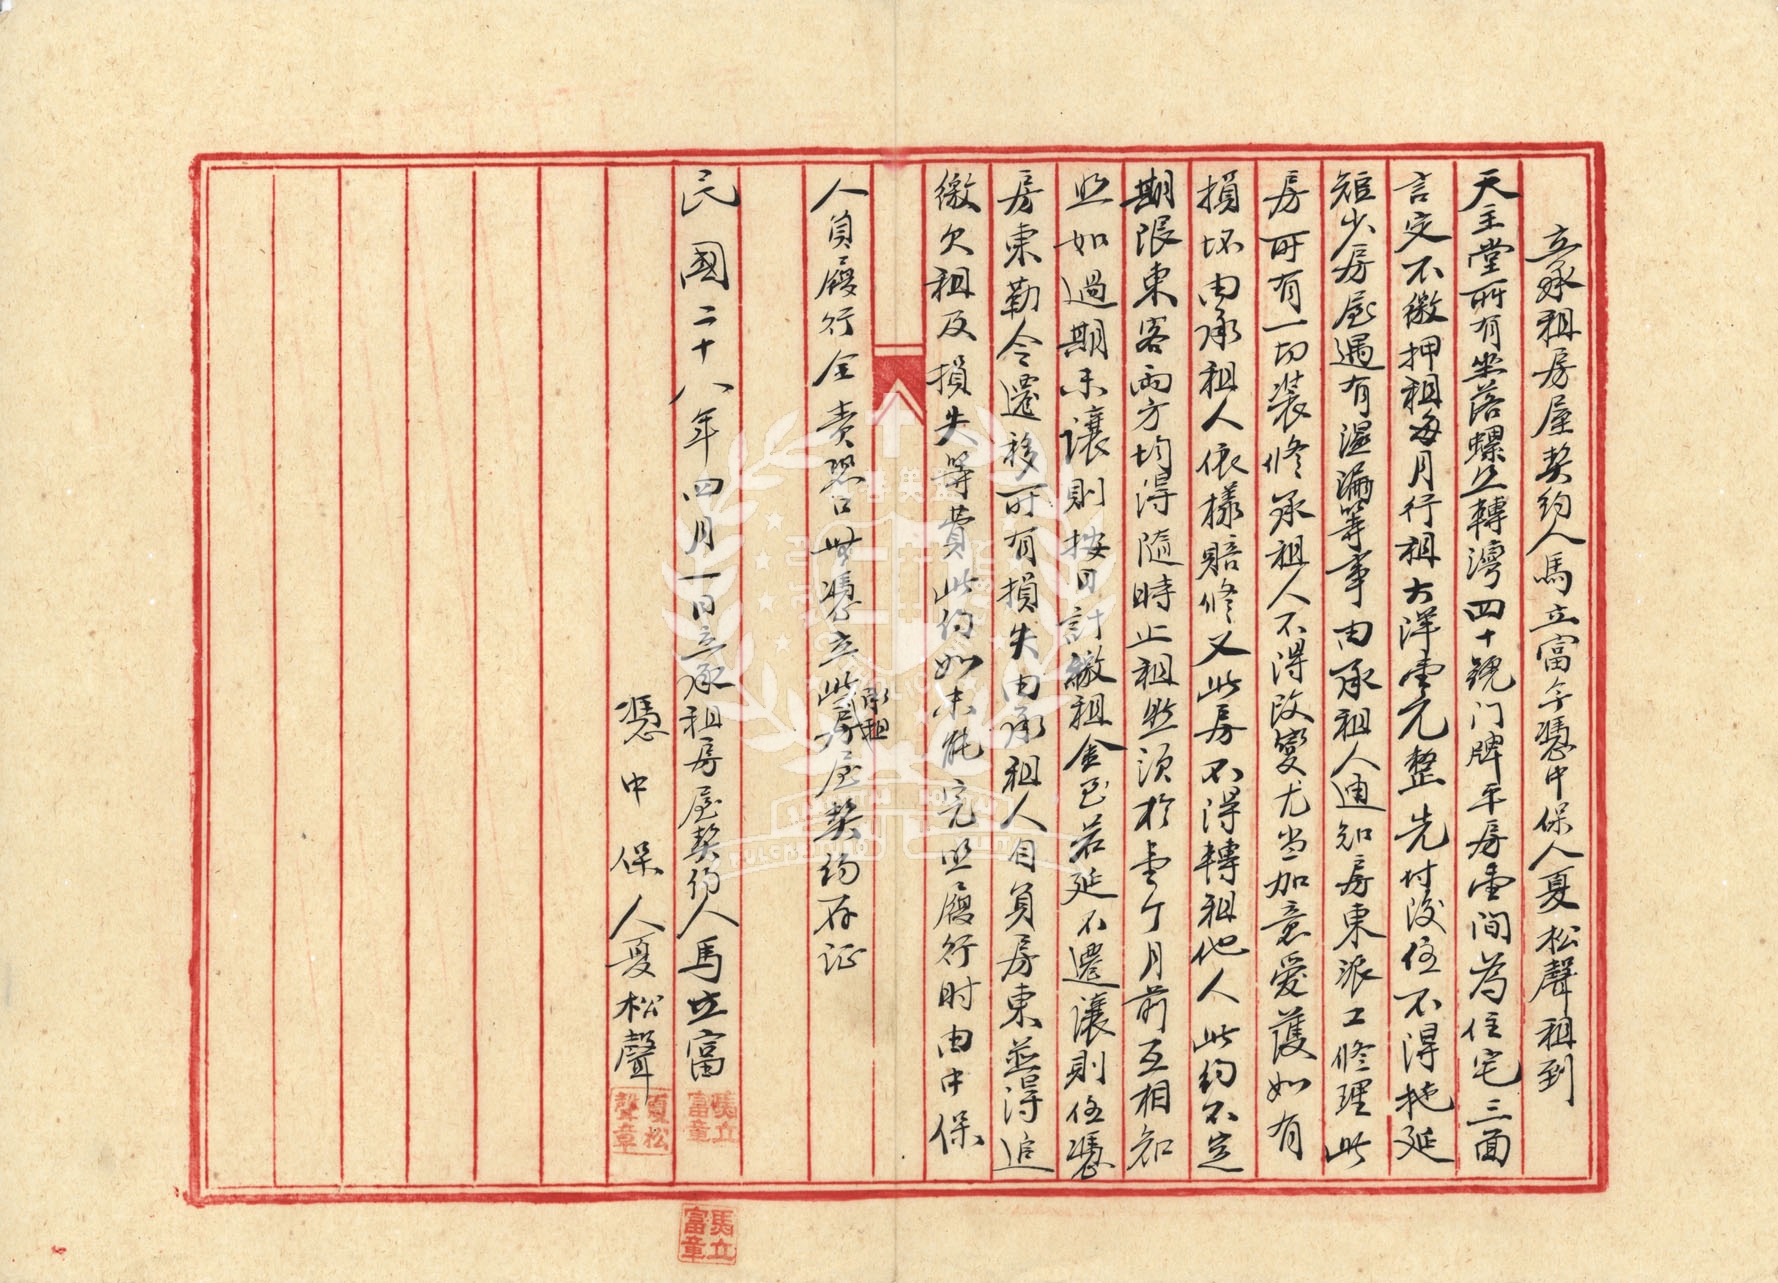 立承租房屋契約人馬立富今憑中保人夏松聲租到
天主堂所有坐落螺丘轉灣四十號门牌平房壹间為住宅三面
言定不繳押租每月行租大洋壹元整先付後住不得拖延
短少房屋遇有濕漏等事由承租人通知房東派工修理此
房所有一切装修承租人不得改變尤当加意愛護如有
損坏由承租人依樣賠修又此房不得轉租他人此約不定
期限東客両方均得隨時止租然須於壹个月前互相知
照如過期未讓則按日計繳租金至若延不遷讓則任憑
房東勒令遷移所有損失由承租人自負房東并得追
繳欠租及損失等費此約如未能完照履行时由中保
人負履行全责恐口無憑立此承租房屋契約存证
民國二十八年四月一日立承租房屋契約人馬立富
馬立富章
憑中保人夏松聲
夏松聲章
馬立富章